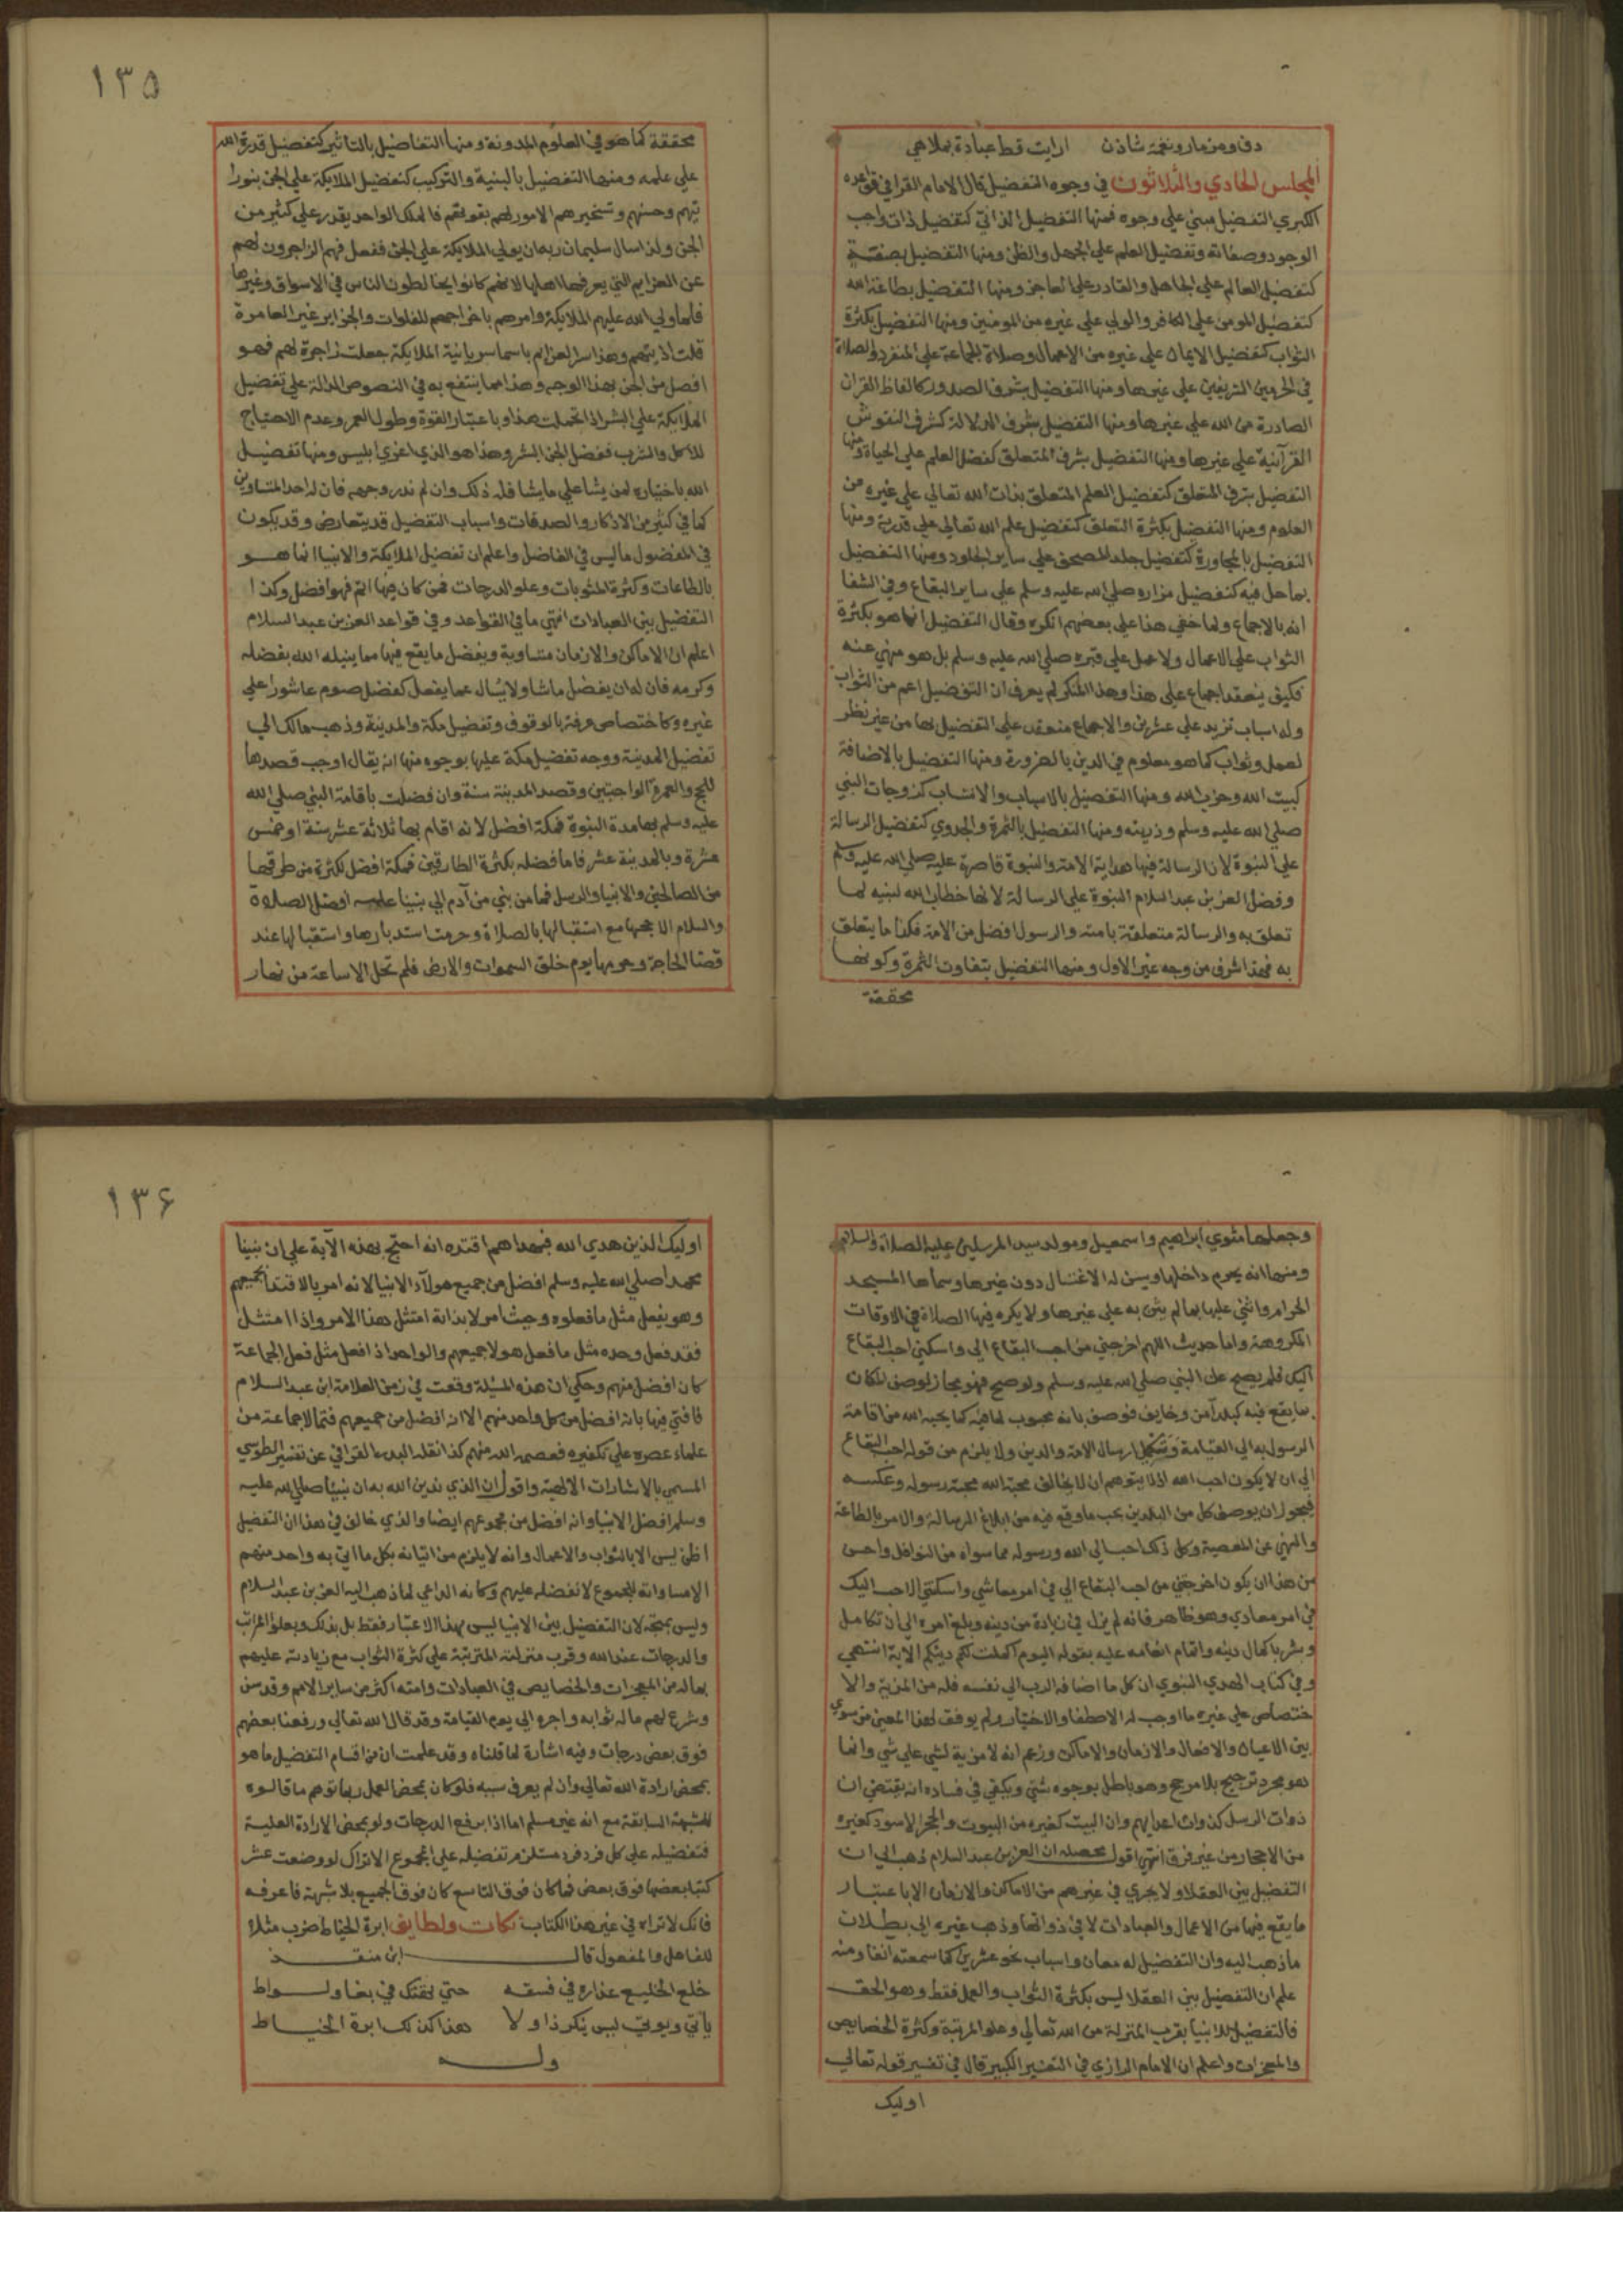 دف ومزمار ونغمة شاذن ارايت قط عبادة بملاهي
المجلس الحادي والثلاثون في وجوه التفضيل قال الامام القرافي في قواعده
الكبري التفضيل مبني علي وجوه فمنها التفضيل الذاتي كتفضيل ذات واجب
الوجود وصفاته وتفضيل العلم علي الجهل والظن ومنها التفضيل بصفة
كتفضيل العالم علي الجاهل والقادر علي العاجز ومنها التفضيل بطاعة الله
كتفضيل المومن علي الكافر والولي علي غيره من المومنين ومنها التفضيل بكثرة
الثواب كتفضيل الايمان علي غيره من الاعمال وصلاة الجماعة علي المنفرد والصلاة
في الحرمين الشريفين علي غيرها ومنها التفضيل بشرف الصدور كالفاظ القران
الصادرة من الله علي غيرها ومنها التفضيل بشرف الدلالة كشرف النقوش
القرآنية علي غيرها ومنها التفضيل بشرف المتعلق كفضل العلم علي الحياة ومنها
التفضيل بشرف المتعلق كتفضيل العلم المتعلق بذات الله تعالي علي غيره من
العلوم ومنها التفضيل بكثرة التعلق كتفضيل علم الله تعالي علي قدرته ومنها
التفضيل بالمجاورة كتفضيل جلد المصحف علي ساير الجلود ومنها التفضيل
بما حل فيه كتفضيل مزاره صلي الله عليه وسلم علي ساير البقاع وفي الشفا
انه بالاجماع ولما خفي هذا علي بعضهم انكره وقال التفضيل انما هو بكثرة
الثواب علي الاعمال ولا عمل علي قبره صلي الله عليه وسلم بل هو منهي عنه
فكيف ينعقد اجماع علي هذا وهذا المنكر لم يعرف ان التفضيل اعم من الثواب
وله اسباب تزيد علي عشرين والاجماع منعقد علي التفضيل بها من غير نظر
لعمل وثواب كما هو معلوم في الدين بالضرورة ومنها التفضيل بالاضافة
كبيت الله وحزب الله ومنها التفضيل بالاسباب والانتساب كزوجات النبي
صلي الله عليه وسلم وذريته ومنها التفضيل بالثمرة والجدوي كتفضيل الرسالة
علي النبوة لان الرسالة فيها هداية الامة والنبوة قاصرة عليه صلي الله عليه وسلم
وفضل العز بن عبد السلام النبوة علي الرسالة لانها خطاب الله لنبيه لما
تعلق به والرسالة متعلقة بامته والرسول افضل من الامة فكذا ما يتعلق
به فهذا اشرف من وجه غير الاول ومنها التفضيل بتفاوت الثمرة وكونها
محققة
١٣٥
محققة كما هو في العلوم المدونة ومنها التفاضيل بالتاثير كتفضيل قدرة الله
علي علمه ومنها التفضيل بالبنية والتركيب كتفضيل الملايكة علي الجن بنورا
نيتهم وحسنهم وتسخيرهم الامور لهم بقوتهم فالملك الواحد يقدر علي كثير من
الجن ولذا سال سليمان ربه ان يولي الملايكة علي الجن ففعل فهم الزاجرون لهم
عن العزايم التي يعرفها اهلها لانهم كانوا يخالطون الناس في الاسواق وغيرها
فلما ولي الله عليهم الملايكة وامرهم باخراجهم للفلوات والجزاير غير العامرة
قلت اذيتهم وهذا سر العزايم باسما سريانية الملايكة جعلت زاجرة لهم فهو
افضل من الجن بهذا الوجه وهذا مما ينتفع به في النصوص الدالة علي تفضيل
الملايكة علي البشر اذا تحملت هذا وباعتبار القوة وطول العمر وعدم الاحتياج
للاكل والشرب ففضل الجن البشر وهذا هو الذي اغوي ابليس ومنها تفضيل
الله باختياره لمن يشا علي ما يشا فله ذلك وان لم ندر وجهه فان له احد المتساويين
كما في كثير من الاذكار والصدقات واسباب التفضيل قد يتعارض وقد يكون
في المفضول ما ليس في الفاضل واعلم ان تفضيل الملايكة والانبيا انما هو
بالطاعات وكثرة المثوبات وعلو الدرجات فمن كان فيها اتم فهو افضل وكذا
التفضيل بين العبادات انتهي ما في القواعد وفي قواعد العز بن عبد السلام
اعلم ان الاماكن والازمان متساوية ويفضل ما يقع فيها مما ينيله الله بفضله
وكرمه فان له ان يفضل ما شا ولا يسال عما يفعل كفضل صوم عاشورا علي
غيره وكاختصاص عرفة بالوقوف وتفضيل مكة والمدينة وذهب مالك الي
تفضيل المدينة ووجه تفضيل مكة عليها بوجوه منها ان يقال اوجب قصدها
للحج والعمرة الواجبتين وقصد المدينة سنة وان فضلت باقامة النبي صلي الله
عليه وسلم بها مدة النبوة فمكة افضل لانه اقام بها ثلاثة عشر سنة او خمس
عشرة وبالمدينة عشر فاما فضله بكثرة الطارقين فمكة افضل لكثرة من طرقها
من الصالحين والانبيا والرسل فما من نبي من آدم الي نبينا عليه افضل الصلاة
والسلام الا حجها مع استقبالها بالصلاة وحرمت استدبارها واستقبالها عند
قضا الحاجة وحرمها يوم خلق السموات والارض فلم تحل الا ساعة من نهار
وجعلها مثوي ابراهيم واسمعيل ومولد سيد المرسلين عليه الصلاة والسلام
ومنها انه يحرم داخلها ويسن له الاغتسال دون غيرها وسماها المسجد
الحرام واثني عليها بما لم يثن به علي غيرها ولا يكره فيها الصلاة في الاوقات
المكروهة واما حديث اللهم اخرجتني من احب البقاع الي واسكني احب البقاع
اليك فلم يصح عن النبي صلي الله عليه وسلم ولو صح فهو مجاز لوصف المكان
بما يقع فيه كبلد آمن وخايف فوصف بانه محبوب لما فيه كما يحبه الله من اقامة
الرسول به الي القيامة وتكميل ارسال الامة والدين ولا يلزم من قوله احب البقاع
الي ان لا يكون احب الله اذا يتوهم ان لا يخالف محبة الله محبة رسوله وعكسه
فيجوز ان يوصف كل من البلدين بحب ما وقع فيه من ابلاغ الرسالة والامر بالطاعة
والنهي عن المعصية وكل ذلك احب الي الله ورسوله مما سواه من النوافل واحسن
من هذا ان يكون اخرجتني من احب البقاع الي في امر معاشي واسكنني الاحب اليك
في امر معادي وهو ظاهر فانه لم يزل في زيادة من دينه وبلغ امره الي ان تكامل
وبشر باكمال دينه واتمام انعامه عليه بقوله اليوم اكملت لكم دينكم الاية انتهي
وفي كتاب الهدي النبوي ان كل ما اضافه الرب الي نفسه فله من المزية والا
ختصاص علي غيره ما اوجب له الاصطفا والاختيار ولم يوفق لهذا المعني من سوي
بين الاعيان والافعال والازمان والاماكن وزعم انه لا مزية لشي علي شي وانما
هو مجرد ترجيح بلا مرجح وهو باطل بوجوه شتي ويكفي في فساده انه يقتضي ان
ذوات الرسل كذوات اعدايهم وان البيت كغيره من البيوت والحجر الاسود كغيره
من الاحجار من غير فرق انتهي اقول محصله ان العز بن عبد السلام ذهب الي ان
التفضيل بين العقلا ولا يجري في غيرهم من الاماكن والازمان الا باعتبار
ما يقع فيها من الاعمال والعبادات لا في ذواتها وذهب غيره الي بطلان
ما ذهب اليه وان التفضيل له معان واسباب نحو عشرين كما سمعته انفا ومنه
علم ان التفضيل بين العقلا ليس بكثرة الثواب والعمل فقط وهو الحق
فالتفضيل للانبيا بقرب المنزلة من الله تعالي وعلو المرتبة وكثرة الخصايص
والمعجزات واعلم ان الامام الرازي في التفسير الكبير قال في تفسير قوله تعالي
اوليك
١٣۶
اوليك الذين هدي الله فبهداهم اقتده انه احتج بهذه الآية علي ان نبينا
محمدا صلي الله عليه وسلم افضل من جميع هولآء الانبيا لانه امر بالاقتدا بجميعهم
وهو يفعل مثل ما فعلوه وحيث امر لا بد انه امتثل هذا الامر واذا امتثل
فقد فعل وحده مثل ما فعل هولا جميعهم والواحد اذا فعل مثل فعل الجماعة
كان افضل منهم وحكي ان هذه المسئلة وقعت في زمن العلامة ابن عبد السلام
فافتي فيها بانه افضل من كل واحد منهم الا انه افضل من جميعهم فتمالا جماعة من
علماء عصره علي تكفيره فعصمه الله منهم كذا نقله البدر القرافي عن تفسير الطوي
المسمي بالاشارات الالهية واقول ان الذي ندين الله به ان نبينا صلي الله عليه
وسلم افضل الانبيا وانه افضل من مجموعهم ايضا والذي خالف في هذا ان التفضيل
اظن ليس الا بالثواب والاعمال وانه لا يلزم من اتيانه بكل ما اتي به واحد منهم
الا مساواته للمجموع لا تفضله عليهم وكانه الداعي لما ذهب اليه العز بن عبد السلام
وليس بمتجه لان التفضيل بين الانبيا ليس بهذا الاعتبار فقط بل بذلك وبعلو المراتب
والدرجات عند الله وقرب منزلته المترتبة علي كثرة الثواب مع زيادته عليهم
بما له من المعجزات والخصايص في العبادات وامته اكثر من ساير الامم وقد سن
وشرع لهم ما له ثوابه واجره الي يوم القيامة وقد قال الله تعالي ورفعنا بعضهم
فوق بعض درجات وفيه اشارة لما قلناه وقد علمت ان من اقسام التفضيل ما هو
بمحض ارادة الله تعالي وان لم يعرف سببه فلو كان بمحض العمل ربما توهم ما قالوه
للشبهة السابقة مع انه غير مسلم اما اذا برفع الدرجات ولو بمحض الارادة العلية
فتفضيله علي كل فرد فرد مستلزم تفضيله علي المجموع الا تراك لو وضعت عشر
كتبا بعضها فوق بعض فما كان فوق التاسع كان فوق الجميع بلا شبهة فاعرفه
فانك لا تراه في غير هذا الكتاب نكات ولطايف ابرة الخياط ضرب مثلا
للفاعل والمفعول قال ابن منقذ
خلع الخليع عذاره في فسقه حتي تهتك في بغا ولواط
ياتي ويوتي ليس ينكر ذا ولا هذا كذلك ابرة الخياط
وله